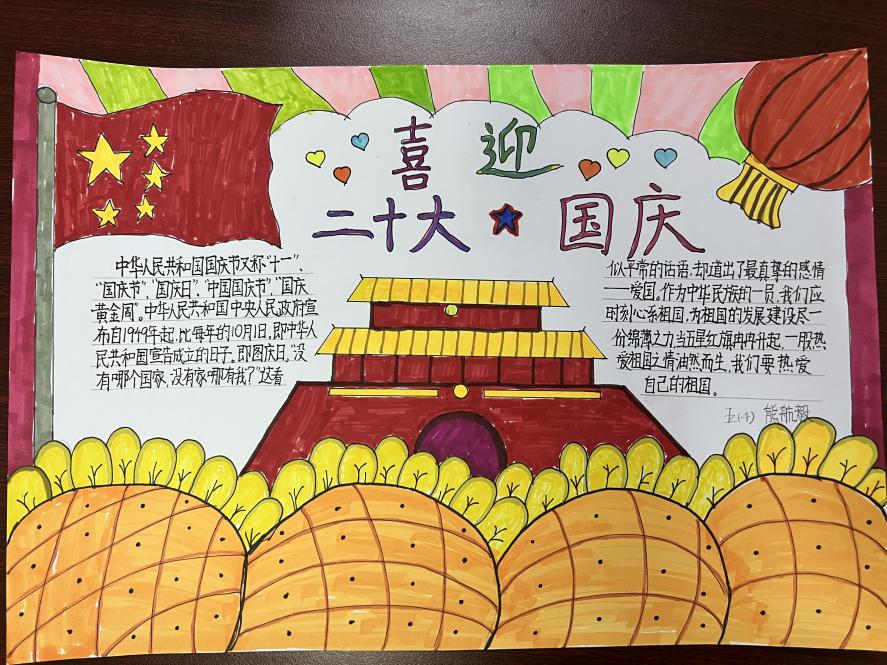 喜迎
二十大★国庆
中华人民共和国国庆节又称"十一"、
"国庆节"、"国庆日"、"中国国庆节"、"国庆
黄金周"。中华人民共和国中央人民政府宣
布自1949年起,比每年的10月1日,即中华人
民共和国宣告成立的日子。即国庆日。"没
有哪个国家,没有家哪有我?"这看
似平常的话语,却道出了最真挚的感情
——爱国。作为中华民族的一员,我们应
时刻心系祖国,为祖国的发展建设尽一
份绵薄之力,当五星红旗冉冉升起,一股热
爱祖国之情油然而生,我们要热爱
自己的祖国。
五(4) 熊航毅